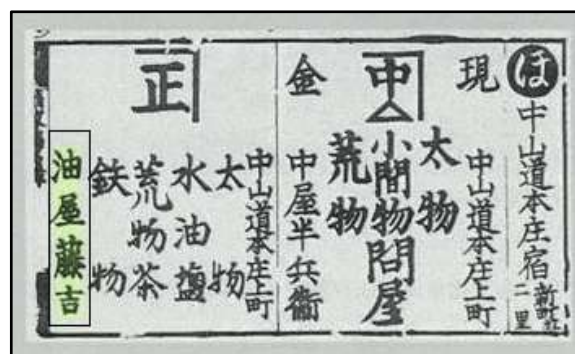 ほ
中山道本庄宿
新町江
二里
中山道本庄上町
現
太物
小間物問屋
荒物
中
金
中屋半兵衞
正
中山道本庄上町
太物
水油鹽
荒物茶
鉄物
油屋藤吉